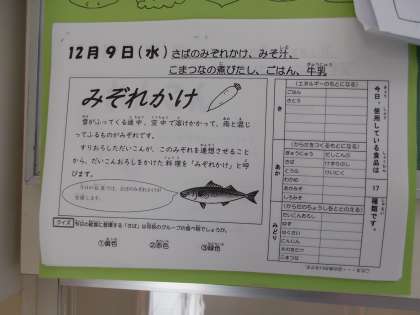 12月9日(水) さばのみぞれかけ、みそ汁、
こまつなの煮びたし、ごはん、牛乳
みぞれかけ
雲がふってくる途中、空中で溶けかかって、雨と混じ
ってふるものがみぞれです。
すりおろしただいこんが、このみぞれを連想させること
から、だいこんおろしをかけた料理を「みぞれかけ」と呼
びます。
今日の給食では、さばのみぞれかけが
登場します。
クイズ 今日の給食に登場する「さば」は何色のグループの食べ物でしょうか。
①黄色 ②赤色 ③緑色
今日、使用している食品は 17 種類です。
き
(エネルギーのもとになる)
ごはん
さとう
あか
(からだをつくるもとになる)
ぎゅうにゅう だしこんぶ
さば けずりぶし
とうふ けいにく
わかめ
あかみそ
しろみそ
みどり
(からだのちょうしをととのえる)
だいこんおろし
ゆず
はくさい
にんじん
こまつな